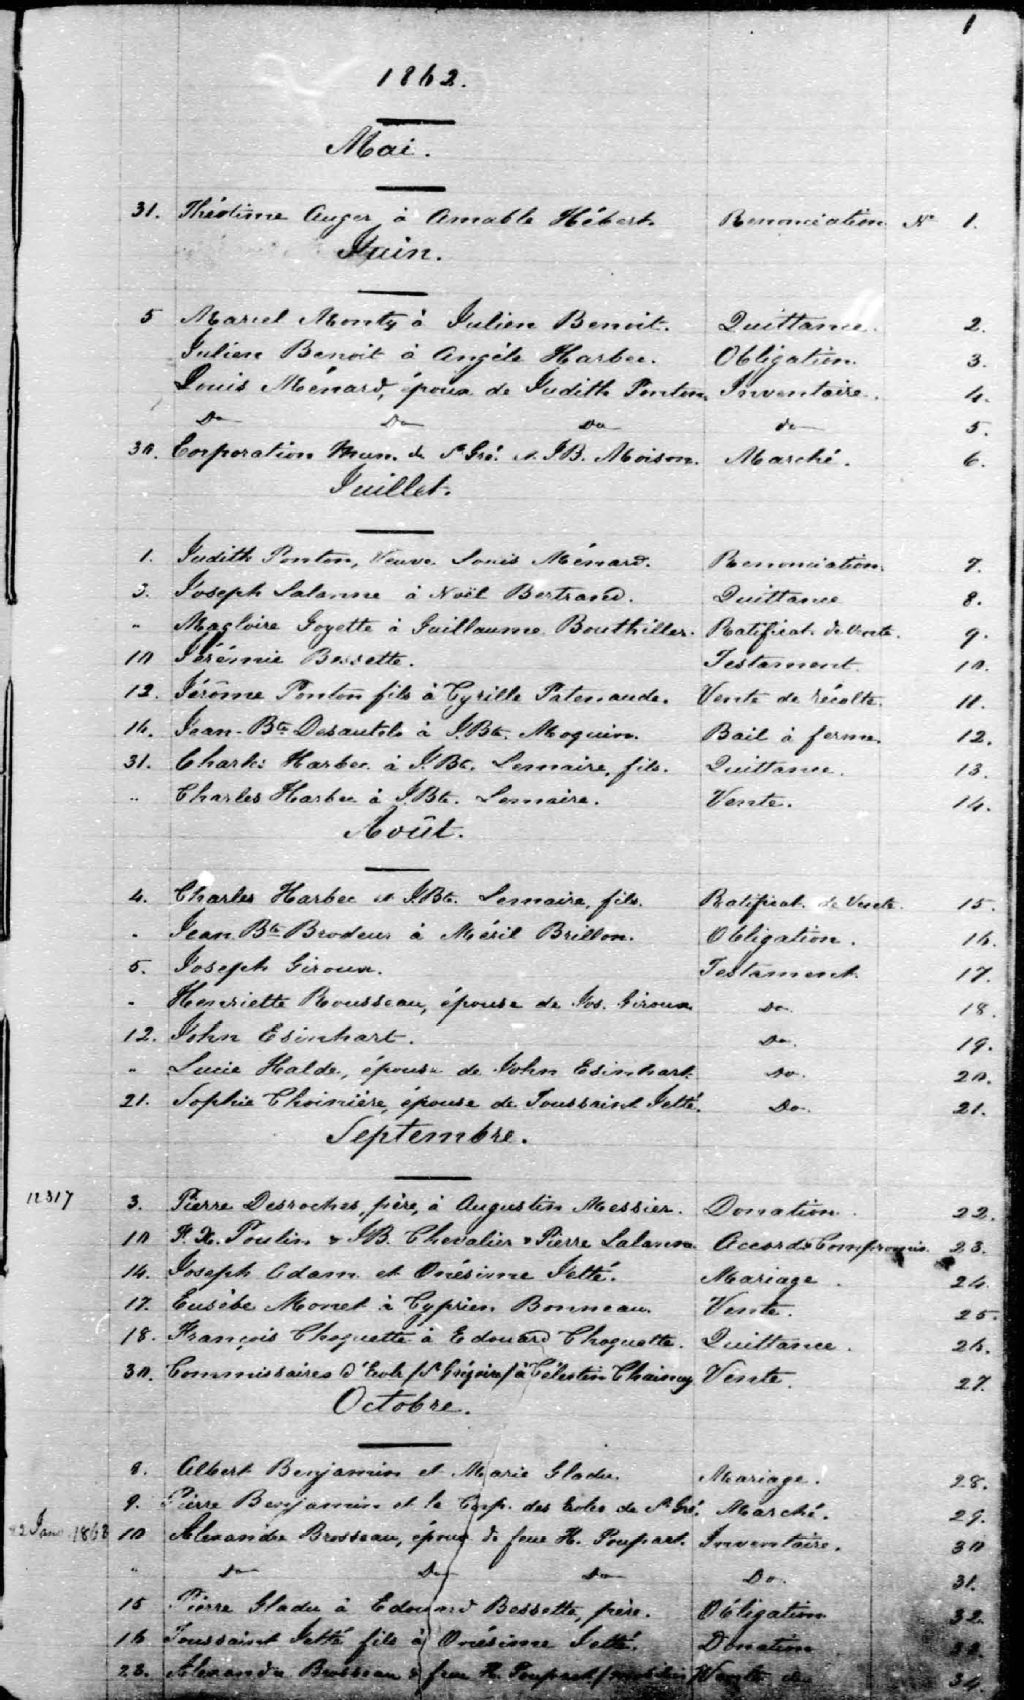 1
1862.
Mai.
31. Théotime Auger à Amable Hébert. Renonciation No 1.
Juin.
5 Marcel Monty à Julien Benoit. Quittance. 2.
Julien Benoit à Angèle Harbec. Obligation. 3.
Louis Ménard, époux de Judith Ponton. Inventaire. 4.
Do Do Do do 5.
30. Corporation Mun. de St Gré. & J.B. Moison. Marché. 6.
Juillet.
1. Judith Ponton, Veuve Louis Ménard. Renonciation. 7.
3. Joseph Lalanne à Noël Bertrand. Quittance 8.
" Magloire Goyette à Guillaume Bouthiller. Ratificat. de Vente. 9.
10 Jérémie Bessette. Testament. 10.
12. Jérôme Ponton fils à Cyrille Patenaude. Vente de récolte. 11.
14. Jean-Bte Desautels à J.Bte. Moquin. Bail à ferme. 12.
31. Charles Harbec à J.Bte. Lemaire, fils. Quittance. 13.
" Charles Harbec à J.Bte. Lemaire. Vente. 14.
Août.
4. Charles Harbec et J.Bte. Lemaire, fils. Ratificat. de Vente. 15.
" Jean Bte Brodeur à Méril Brillon. Obligation. 16.
5. Joseph Giroux. Testament. 17.
" Henriette Rousseau, épouse de Jos. Giroux Do 18.
12. John Esinhart. Do. 19.
" Lucie Halde, épouse de John Esinhart. Do. 20.
21. Sophie Choinière, épouse de Toussaint Jetté. Do. 21.
Septembre.
12317 3. Pierre Desroches, père, à Augustin Messier. Donation. 22.
10 F. X. Poulin & J.B. Chevalier & Pierre Lalanne. Accord & Compromis. 23.
14. Joseph Adam et Onésime Jetté. Mariage. 24
17. Eusèbe Monet à Cyprien Bonneau. Vente. 25.
18. François Choquette à Edouard Choquette. Quittance. 26.
30. Commissaires d'Ecole /St Grégoire/ à Célestin Chainey Vente. 27.
Octobre.
8. Albert Benjamin et Marie Gladu. Mariage. 28.
9. Pierre Benjamin et la Corp. des Ecoles de St Gré. Marché. 29.
22 Janv 1863 10 Alexandre Brosseau, époux de feue H. Poupart. Inventaire. 30
" do Do Do Do. 31.
15 Pierre Gladu à Edouard Bessette, père. Obligation 32.
16 Toussaint Jetté fils à Onésime Jetté. Donation 33.
23. Alexandre Brosseau & feue H. Poupart Vente de 34.